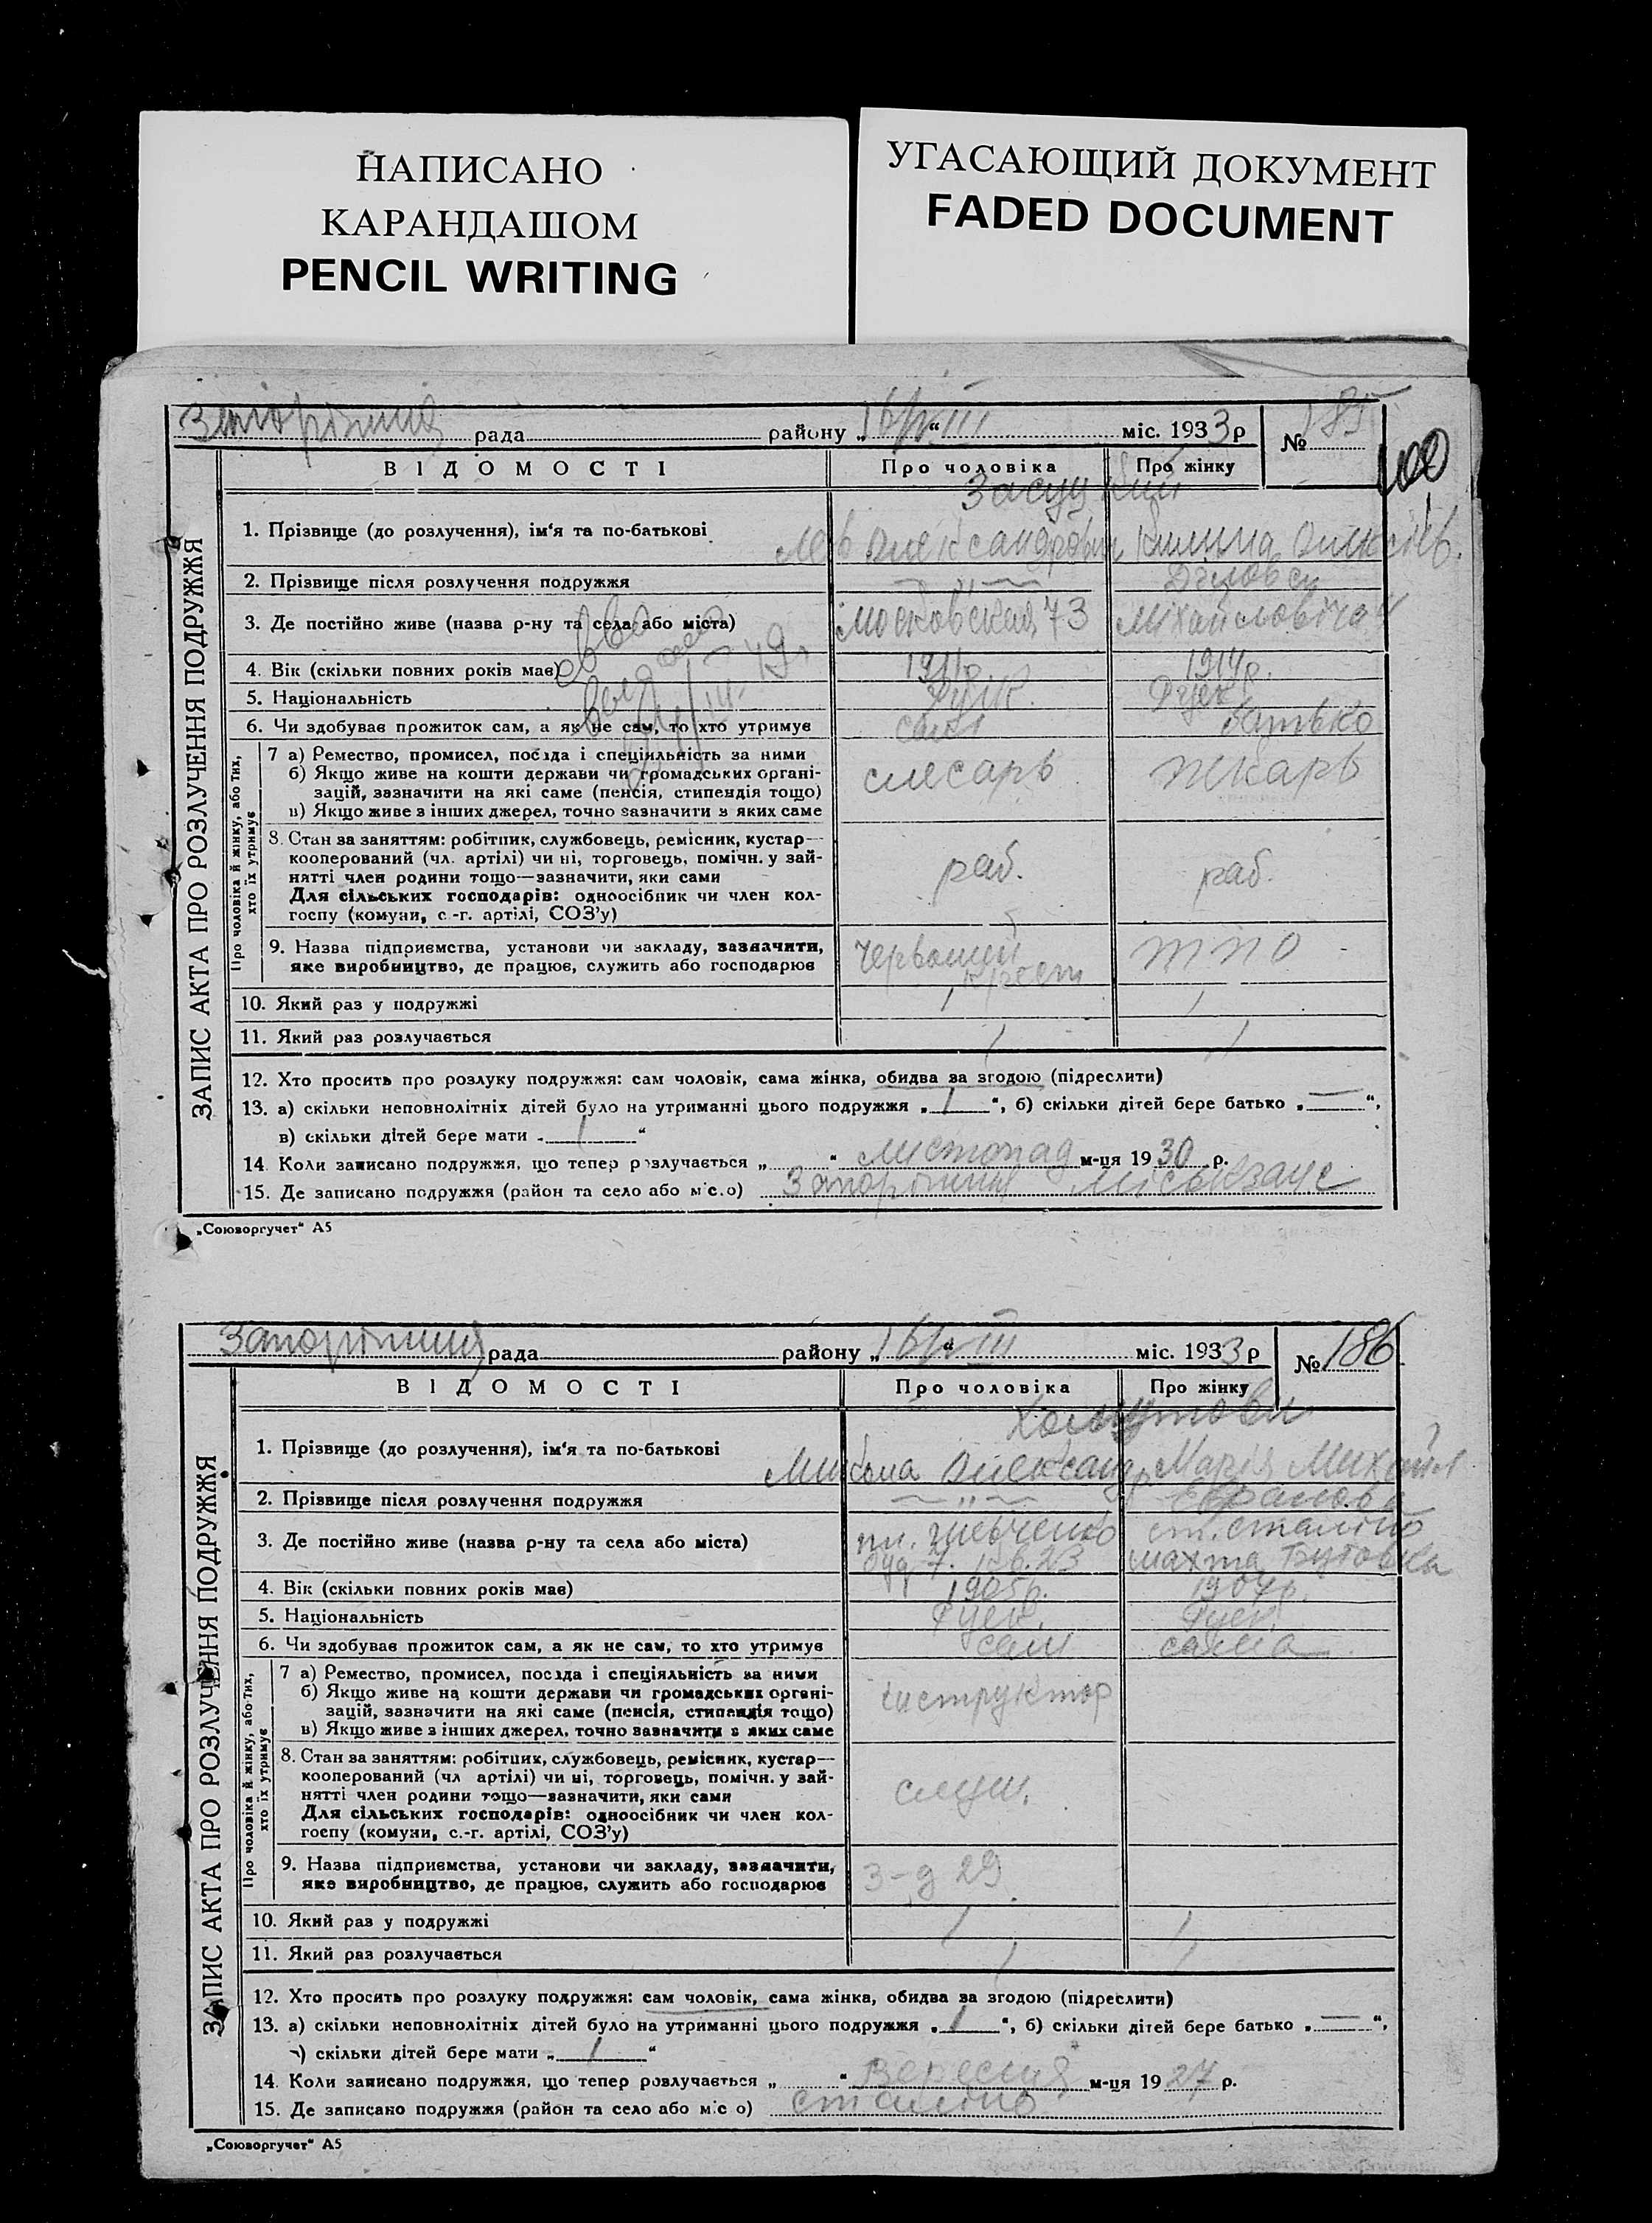 НАПИСАНО
КАРАНДАШОМ
PENCIL WRITING
УГАСАЮЩИЙ ДОКУМЕНТ
FADED DOCUMENT
рада району „16/VIII“ міс. 1933 р № 185
100
ВІДОМОСТІ Про чоловіка Про жінку
ЗАПИС АКТА ПРО РОЗЛУЧЕННЯ ПОДРУЖЖЯ
1. Прізвище (до розлучення), ім‘я та по-батькові
2. Прізвище після розлучення подружжя — „ —
3. Де постійно живе (назва р-ну та села або міста) Московская 73
4. Вік (скільки повних років має) 1911р. 1914р.
5. Національність Руск. Руск
6. Чи здобував прожиток сам, а як не сам, то хто утримує сам батько
Про чоловіка й жінку, або тих, хто їх утримує
7 а) Ремество, промисел, посада і спеціяльність за ними
б) Якщо живе на кошти держави чи громадських органі-
зацій, зазначити на які саме (пенсія, стипендія тощо) слесарь пекарь
в) Якщо живе з інших джерел, точно зазначити з яких саме
8. Стан за заняттям: робітник, службовець, ремісник, кустар—
кооперований (чл. артілі) чи ні, торговець, помічн. у зай-
нятті член родини тощо—зазначити, яки сами раб. раб.
Для сільських господарів: одноосібник чи член кол-
госпу (комуни, с.-г. артілі, СОЗ’у)
9. Назва підприємства, установи чи закладу, зазначити, Червоний ТПО
яке виробництво, де працює, служить або господарює
10. Який раз у подружжі 1 1
11. Який раз розлучається 1 1
12. Хто просить про розлуку подружжя: сам чоловік, сама жінка, обидва за згодою (підреслити)
13. а) скільки неповнолітніх дітей було на утриманні цього подружжя „ 1 “, б) скільки дітей бере батько „ — “,
в) скільки дітей бере мати „ 1 “
14. Коли записано подружжя, що тепер розлучається „ “ листопад м-ця 1930 р.
15. Де записано подружжя (район та село або місо)
„Союзоргучет“ А5
рада району „16/VIII“ міс. 1933 р № 186
ВІДОМОСТІ Про чоловіка Про жінку
ЗАПИС АКТА ПРО РОЗЛУЧЕННЯ ПОДРУЖЖЯ
Хомутови
1. Прізвище (до розлучення), ім‘я та по-батькові Олександр Марія Михайл
2. Прізвище після розлучення подружжя — „ —
3. Де постійно живе (назва р-ну та села або міста) пл. Шевченко ст. Сталіно
буд 7. 23 шахта Бутовка
4. Вік (скільки повних років має) 1905р. 1907р.
5. Національність Руск. Руск.
6. Чи здобував прожиток сам, а як не сам, то хто утримує сам сама
Про чоловіка й жінку, або тих, хто їх утримує
7 а) Ремество, промисел, посада і спеціяльність за ними
б) Якщо живе на кошти держави чи громадських органі- інструктор
зацій, зазначити на які саме (пенсія, стипендія тощо)
в) Якщо живе з інших джерел, точно зазначити з яких саме
8. Стан за заняттям: робітник, службовець, ремісник, кустар—
кооперований (чл артілі) чи ні, торговець, помічн. у зай-
нятті член родини тощо—зазначити, яки сами служ.
Для сільських господарів: одноосібник чи член кол-
госпу (комуни, с.-г. артілі, СОЗ’у)
9. Назва підприємства, установи чи закладу, зазначити, з-д 29
яке виробництво, де працює, служить або господарює
10. Який раз у подружжі 1 1
11. Який раз розлучається 1 1
12. Хто просить про розлуку подружжя: сам чоловік, сама жінка, обидва за згодою (підреслити)
13. а) скільки неповнолітніх дітей було на утриманні цього подружжя „ 1 “, б) скільки дітей бере батько „ — “,
в) скільки дітей бере мати „ 1 “
14. Коли записано подружжя, що тепер розлучається „ “ Вересня м-ця 1927 р.
15. Де записано подружжя (район та село або міс о) Сталіно
„Союзоргучет“ А5